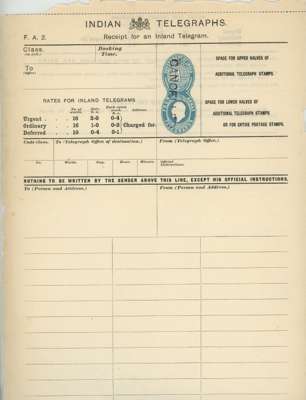 INDIAN TELEGRAPHS.
F. A. 2. Receipt for an Inland Telegram.
Class. Booking Time.
To
SPACE FOR UPPER HALVES OF
ADDITIONAL TELEGRAPH STAMPS.
RATES FOR INLAND TELEGRAMS
SPACE FOR LOWER HALVES OF
ADDITIONAL TELEGRAPH STAMPS
OR FOR ENTIRE POSTAGE STAMPS.
No. of words. Each extra word. Address.
Urgent . . 16 3-0 0-4
Ordinary . . 16 1-0 0-2 Charged for
Deferred . . 10 0-4 0-1
Code class. To (Telegraph Office of destination.) From (Telegraph Office.)
No. Words. Day. Hour. Minute. Official Instructions.
NOTHING TO BE WRITTEN BY THE SENDER ABOVE THIS LINE, EXCEPT HIS OFFICIAL INSTRUCTIONS.
To (Person and Address.) From (Person and Address.)